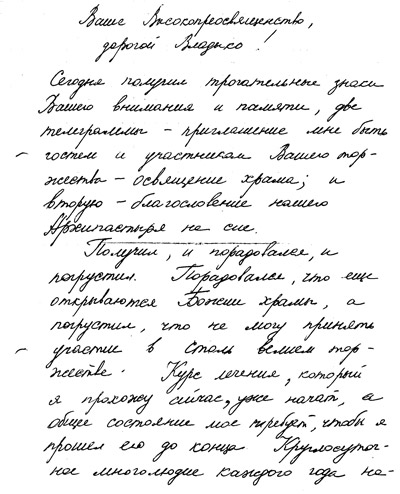 Ваше Высокопреосвященство,
дорогой Владыко!
Сегодня получил трогательные знаки
Вашего внимания и памяти, две
телеграммы – приглашение мне быть
гостем и участником Вашего тор-
жества – освящение храма; и
вторую – благословение нашего
Архипастыря на сие.
Получил, и порадовался, и
погрустил. Порадовался, что еще
открываются Божии храмы, а
погрустил, что не могу принять
участие в столь велием тор-
жестве. Курс лечения, который
я прохожу сейчас, уже начат, а
общее состояние мое требует, чтобы я
прошел его до конца Круглосуточ-
ное многолюдие каждого года на-